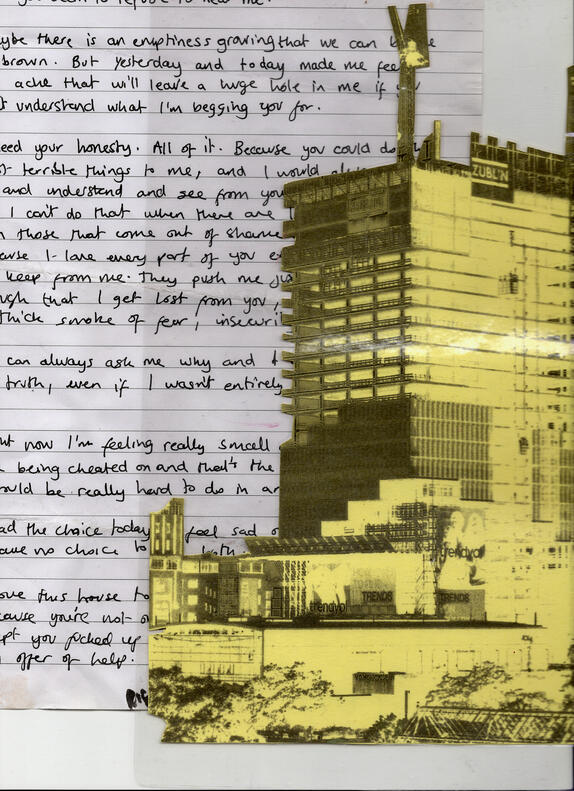 you seem to refuse to hear me.
ybe there is an emptiness growing that we can
brown. But yesterday and today made me feel
ache that will leave a huge hole in me if
t understand what I'm begging you for.
eed your honesty. All of it. Because you could do
st terrible things to me, and I would
and understand and see from you
I can't do that when there are
those that come out of shame
ause I love every part of you
keep from me. They push me
ugh that I get lost from you,
thick smoke of fear, insecuri
can always ask me why and
truth, even if I wasn't entirely
ut now I'm feeling really small
being cheated on and that's the
ould be really hard to do in
ad the choice today feel sad
ave no choice to both
ove this house to
cause you're not
pt you picked up
offer of help.
ZUBLIN
trendyol
trendyol
TRENDS
TRENDS